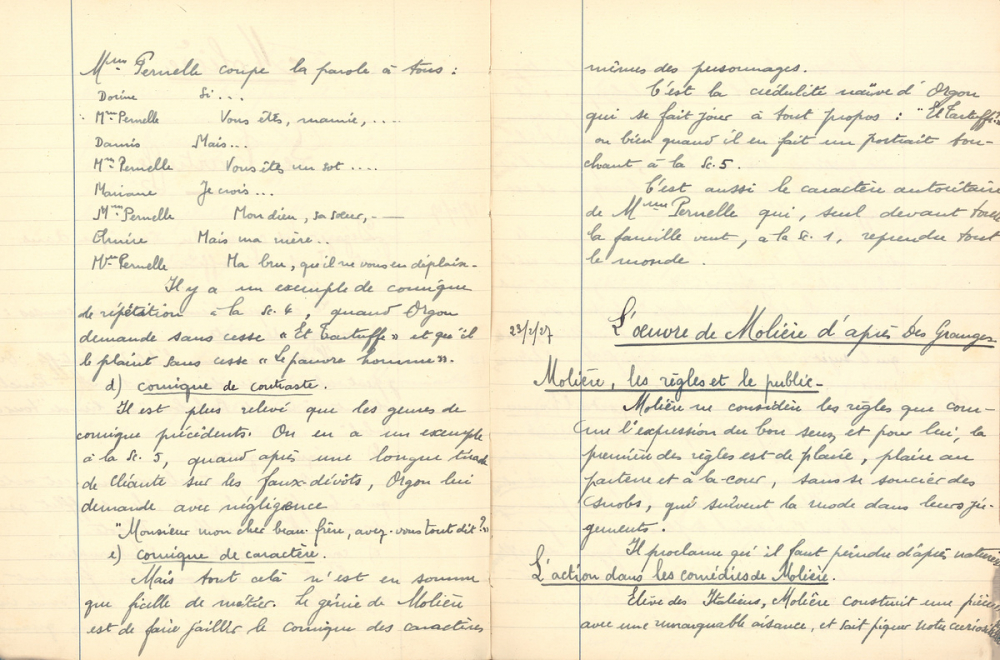 Mme Pernelle coupe la parole à tous :
Dorine Si...
Mme Pernelle Vous êtes, mamie, ....
Damis Mais...
Mme Pernelle Vous êtes un sot ....
Mariane Je crois...
Mme Pernelle Mon dieu, sa sœur, —
Elmire Mais ma mère..
Mme Pernelle Ma bru, qu'il ne vous en déplaise.
Il y a un exemple de comique
de répétition à la Sc. 4, quand Orgon
demande sans cesse « Et Tartuffe » et qu'il
le plaint sans cesse « Le pauvre homme ».
d) comique de contraste.
Il est plus relevé que les genres de
comique précédents. On en a un exemple
à la Sc. 5, quand après une longue tirade
de Cléante sur les faux-dévots, Orgon lui
demande avec négligence
"Monsieur mon cher beau-frère, avez-vous tout dit ?"
e) comique de caractère.
Mais tout celà n'est en somme
que ficelle de métier. Le génie de Molière
est de faire jaillir le comique des caractères
mêmes des personnages.
C'est la crédulité naïve d'Orgon
qui se fait jour à tout propos : "Et Tartuffe"
ou bien quand il en fait un portrait tou-
chant à la Sc. 5.
C'est aussi le caractère autoritaire
de Mme Pernelle qui, seul devant toute
la famille veut, a la Sc. 1, reprendre tout
le monde.
23/2/27 L'œuvre de Molière d'après Des Granges
Molière, les règles et le public.
Molière ne considère les règles que com-
me l'expression du bon sens, et pour lui, la
première des règles est de plaire, plaire au
parterre et à la cour, sans se soucier des
snobs, qui suivent la mode dans leurs ju-
gements.
Il proclame qu'il faut peindre d'après nature
L'action dans les comédies de Molière.
Elève des Italiens, Molière construit une pièce
avec une remarquable aisance, et sait piquer notre curiosité